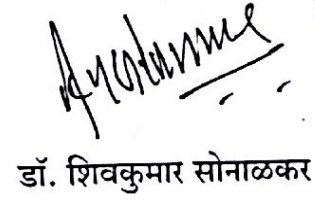 डॉ. शिवकुमार सोनाळकर